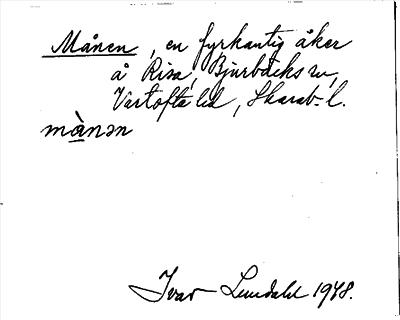 Månen, en fyrkantig åker
å Risa, Bjurbäcks sn,
Vartofta hd, Skarab. l.
mà̱nən
Ivar Lundahl 1948.